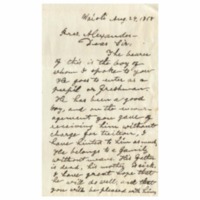 Aug. 29, 1888
Dear Alexander
Dear Sir.
The bearer
of this is the boy of
whom I spoke to you
He goes to enter as a
pupil or Freshman.
He has been a good
boy, and on the
encouragement you gave of
receiving him without
charge for tuition, I
have him
He belongs to a family
without means. His father
is dead, his mother
I have great hope that
he will do well, and that
you will be pleased with him